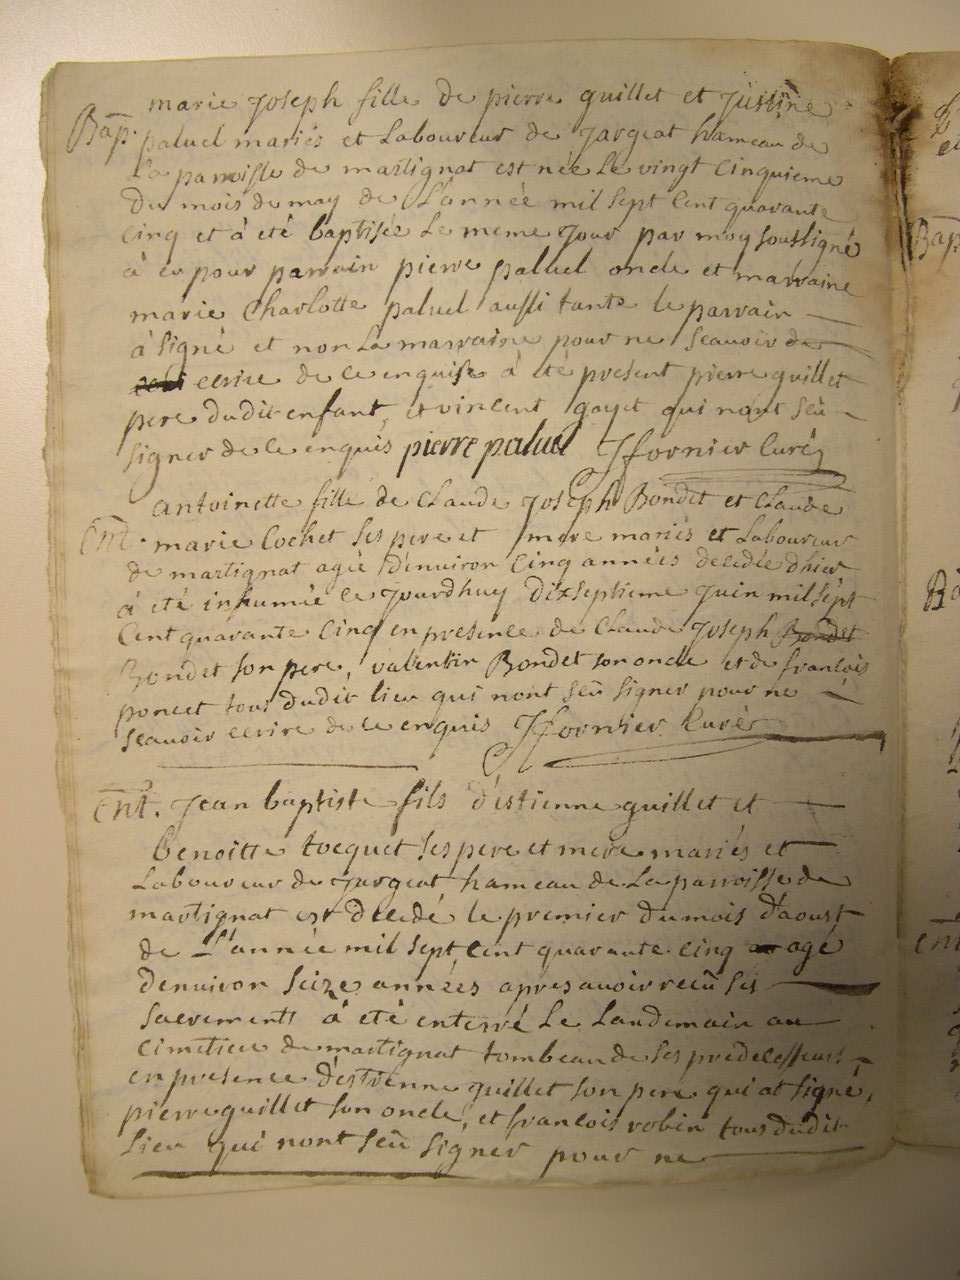 marie Joseph fille de pierre guillet et Justine
Bap. paluel mariés et Laboureur de Jargeat hameau de
La parroisse de martignat est née Le vingt Cinquieme
Du mois de may de L'année mil sept Cent quarante
Cinq et à eté baptisée Le meme Jour par moy soussigné
à eu pour parrain pierre paluel oncle et marraine
marie Charlotte paluel aussi tante le parrain
à signé et non La marraine pour ne sçauoir de
ecrire de ce enquise à eté présent pierre guillet
pere dudit enfant, et vincent gayet qui nont seû
signer de ce enquis pierre paluel Jfornier Curé
antoinette fille de Claude Joseph Bondet et Claude
Ent. marie Cochet ses pere et mere mariés et Laboureur
de martignat agée d'enuiron Cinq années decedée d'hier
à eté inhumée ce Jourdhuy Dixseptieme Juin mil sept
Cent quarante Cinq en presence de Claude Joseph Bondet
Bondet son pere, valentin Bondet son oncle et de françois
poncet tous dudit lieu qui nont seû signer pour ne
sçauoir ecrire de ce enquis Jfornier Curé
Ent. Jean baptiste fils d'estienne guillet et
benoitte tocquet ses pere et mere mariés et
Laboureur de Jargeat hameau de La parroisse de
martignat est decedé le premier du mois d'aoust
de L'année mil sept cent quarante cinq agé
denuiron seize années apres auoir reçû ses
sacrements à eté enterré Le Landemain au
cimetiere de martignat tombeau de ses predecesseurs
en presence d'estienne guillet son pere qui at signé,
pierre guillet son oncle, et françois robin tous dudit
Lieu qui nont seû signer pour ne